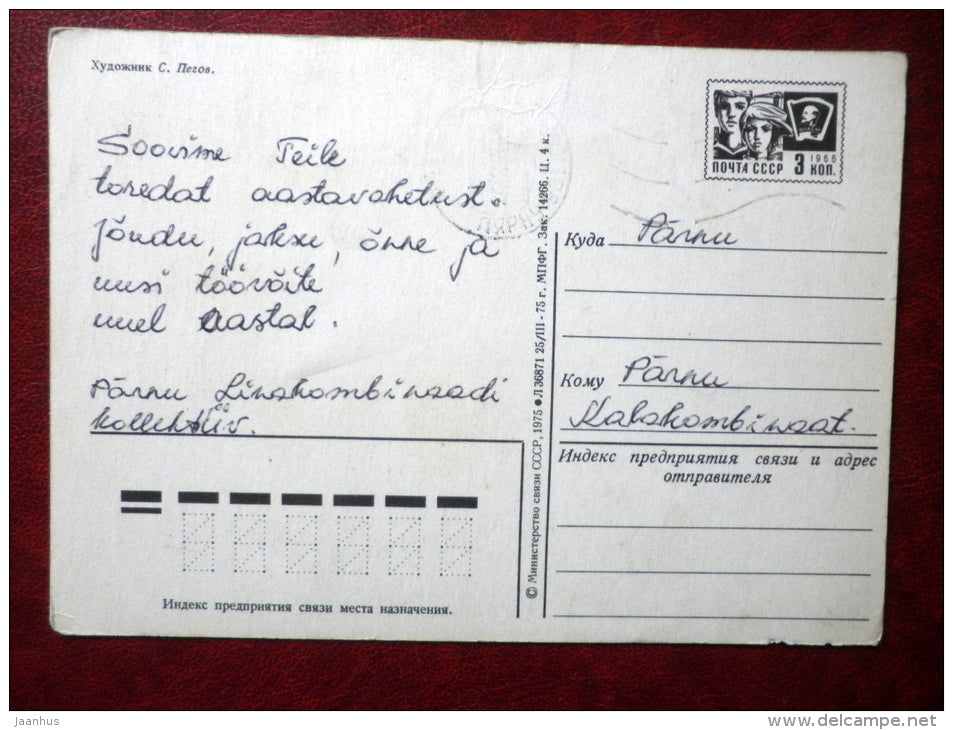 Художник С. Пегов.
Soovime Teile
toredat aastavahetust.
Jõudu, jaksu, õnne ja
uusi töövõite
uuel aastal.
Pärnu Linakombinaadi
kollektiiv.
ПОЧТА СССР 3 КОП.
1966
© Министерство связи СССР, 1975 ● Л 36871 25/III - 75 г. МПФГ. Зак. 14266. Ц. 4 к.
Куда Pärnu
Кому Pärnu
Kalakombinaat.
Индекс предприятия связи и адрес
отправителя
Индекс предприятия связи места назначения.
jaanhus
www.delcampe.net